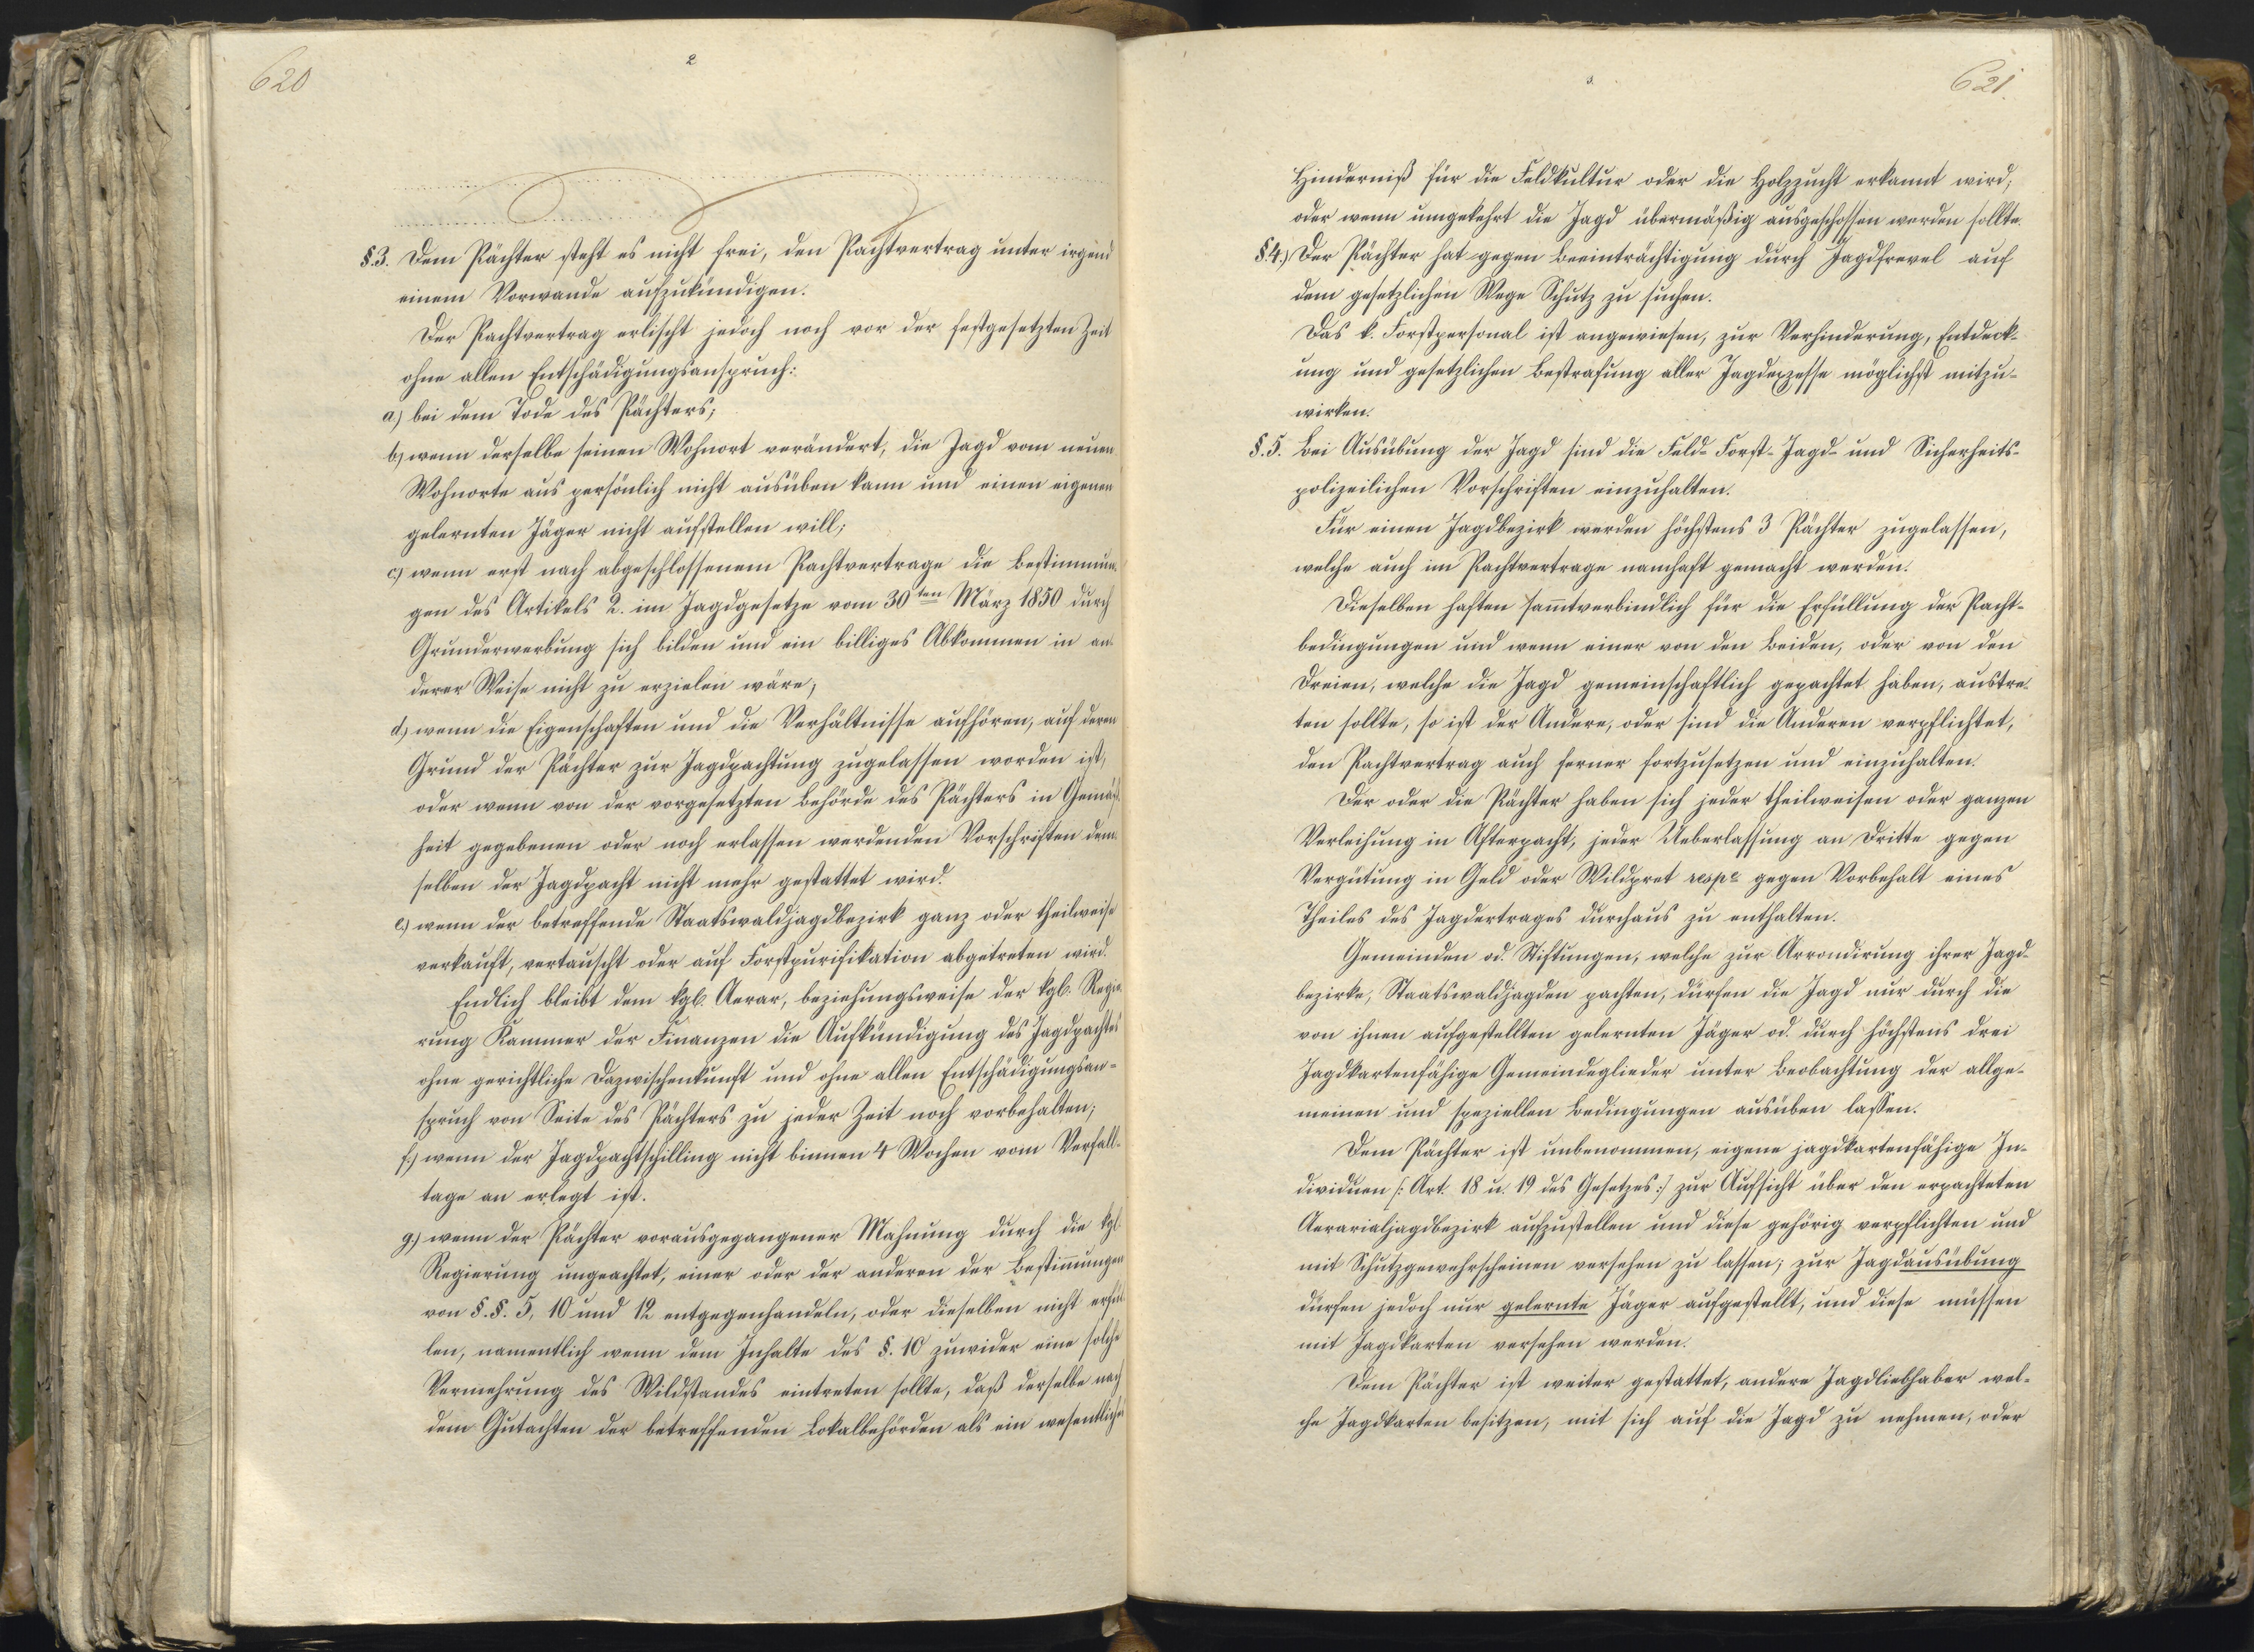 620
2
§.3. Dem Pächter steht es nicht frei, den Pachtvertrag unter irgend
einem Vorwande aufzukündigen.
Der Pachtvertrag erlischt jedoch noch vor der festgesetzten Zeit
ohne allen Entschädigungsanspruch:
a.) bei dem Tode des Pächters;
b) wenn derselbe seinen Wohnort verändert, die Jagd vom neuen
Wohnorte aus persönlich nicht ausüben kann und einen eigenen
gelernten Jäger nicht aufstellen will;
c.) wenn erst nach abgeschlossenem Pachtvertrage die Bestimmun-
gen des Artikels 2. im Jagdgesetze vom 30ten März 1850 durch
Grunderwerbung sich bilden und ein billiges Abkommen in an-
derer Weise nicht zu erzielen wäre;
d.) wenn die Eigenschaften und die Verhältnisse aufhören, auf deren
Grund der Pächter zur Jagdpachtung zugelassen worden ist,
oder wenn von der vorgesetzten Behörde des Pächters in Gemäß-
heit gegebenen oder noch erlassen werdenden Vorschriften dem-
selben der Jagdpacht nicht mehr gestattet wird.
e.) wenn der betreffende Staatswaldjagdbezirk ganz oder theilweise
verkauft, vertauscht oder auf Forstpurifikation abgetreten wird.
Endlich bleibt dem kgl. Aerar, beziehungsweise der kgl. Regie-
rung Kammer der Finanzen die Aufkündigung des Jagdpachtes
ohne gerichtliche Dazwischenkunft und ohne allen Entschädigungsan-
spruch von Seite des Pächters zu jeder Zeit noch vorbehalten;
f.) wenn der Jagdpachtschilling nicht binnen 4 Wochen vom Verfall-
tage an erlegt ist.
g.) wenn der Pächter vorausgegangener Mahnung durch die kgl.
Regierung ungeachtet, einer oder der anderen der Bestim̄ungen
von §.§. 5, 10 und 12 entgegenhandeln, oder dieselben nicht erfül-
len, namentlich wenn dem Inhalte des §. 10 zuwider eine solche
Vermehrung des Wildstandes eintreten sollte, daß derselbe nach
dem Gutachten der betreffenden Lokalbehörden als ein wesentliches
3.
621.
Hinderniß für die Feldkultur oder die Holzzucht erkannt wird,
oder wenn umgekehrt die Jagd übermäßig ausgeschossen werden sollte.
§.4.) Der Pächter hat gegen Beeinträchtigung durch Jagdfrevel auf
dem gesetzlichen Wege Schutz zu suchen.
Das k. Forstpersonal ist angewiesen, zur Verhinderung, Entdeck-
ung und gesetzlichen Bestrafung aller Jagdexzesse möglichst mitzu-
wirken.
§.5. Bei Ausübung der Jagd sind die Feld- Forst- Jagd- und Sicherheits-
polizeilichen Vorschriften einzuhalten.
Für einen Jagdbezirk werden höchstens 3 Pächter zugelassen,
welche auch im Pachtvertrage namhaft gemacht werden.
Dieselben haften sam̄tverbindlich für die Erfüllung der Pacht-
bedingungen und wenn einer von den Beiden, oder von den
Dreien, welche die Jagd gemeinschaftlich gepachtet haben, austre-
ten sollte, so ist der Andere, oder sind die Anderen verpflichtet,
den Pachtvertrag auch ferner fortzusetzen und einzuhalten.
Der oder die Pächter haben sich jeder theilweisen oder ganzen
Verleihung in Afterpacht, jeder Ueberlassung an Dritte gegen
Vergütung in Geld oder Wildpret respe gegen Vorbehalt eines
Theiles des Jagdertrages durchaus zu enthalten.
Gemeinden od. Stiftungen, welche zur Arrondirung ihrer Jagd-
bezirke, Staatswaldjagden pachten, dürfen die Jagd nur durch die
von ihnen aufgestellten gelernten Jäger od. durch höchstens drei
Jagdkartenfähige Gemeindeglieder unter Beobachtung der allge-
meinen und speziellen Bedingungen ausüben lassen.
Dem Pächter ist unbenommen, eigene jagdkartenfähige In-
dividuen [: Art. 18 u. 19 des Gesetzes :] zur Aufsicht über den erpachteten
Aerarialjagdbezirk aufzustellen und diese gehörig verpflichten und
mit Schutzgewehrscheinen versehen zu lassen; zur Jagdausübung
dürfen jedoch nur gelernte Jäger aufgestellt, und diese müssen
mit Jagdkarten versehen werden.
Dem Pächter ist weiter gestattet, andere Jagdliebhaber wel-
che Jagdkarten besitzen, mit sich auf die Jagd zu nehmen, oder